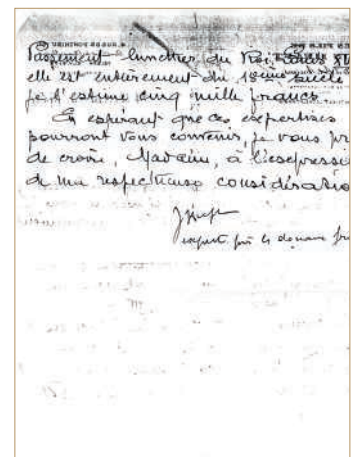 Passement lunettier du Roi Louis XV
elle est entièrement du 18ème siècle
je l'estime cinq mille francs
En espérant que ces expertises
pourront vous convenir, je vous pr
de croire, Madame, à l'expressi
de ma respectueuse considératio
expert près la douane fr